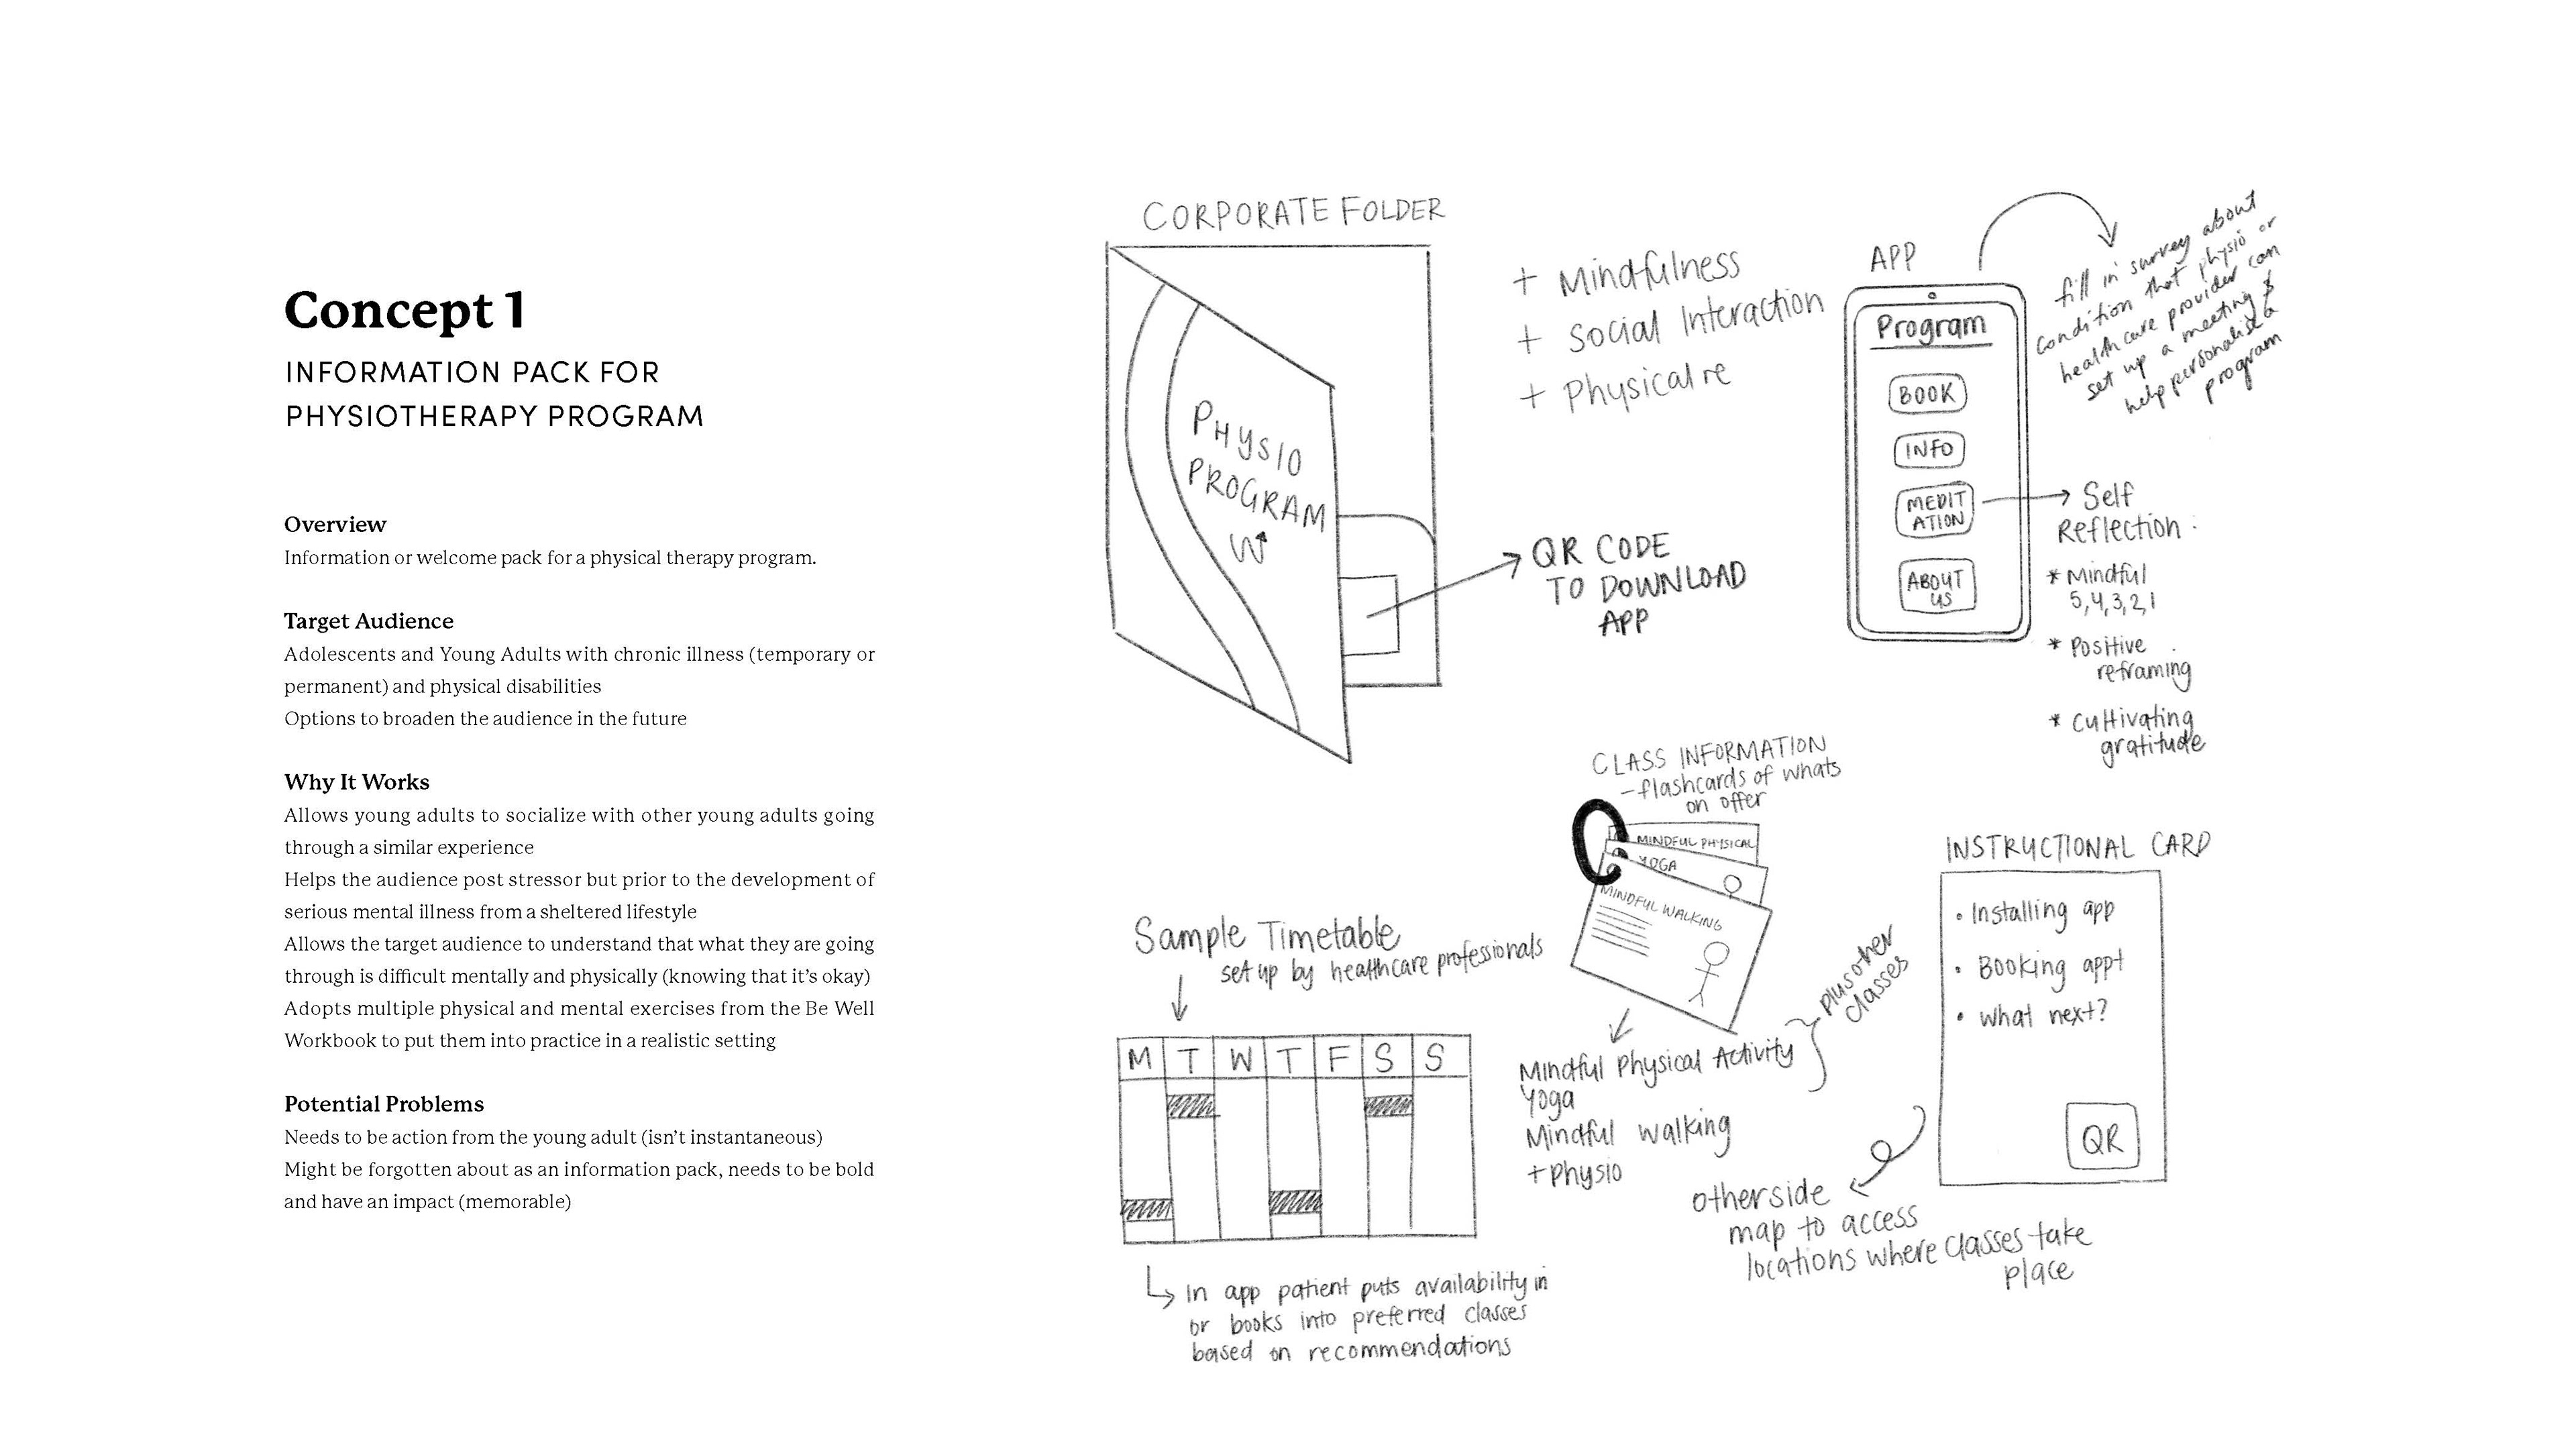 Concept 1
INFORMATION PACK FOR
PHYSIOTHERAPY PROGRAM
Overview
Information or welcome pack for a physical therapy program.
Target Audience
Adolescents and Young Adults with chronic illness (temporary or
permanent) and physical disabilities
Options to broaden the audience in the future
Why It Works
Allows young adults to socialize with other young adults going
through a similar experience
Helps the audience post stressor but prior to the development of
serious mental illness from a sheltered lifestyle
Allows the target audience to understand that what they are going
through is difficult mentally and physically (knowing that it's okay)
Adopts multiple physical and mental exercises from the Be Well
Workbook to put them into practice in a realistic setting
Potential Problems
Needs to be action from the young adult (isn't instantaneous)
Might be forgotten about as an information pack, needs to be bold
and have an impact (memorable)
CORPORATE FOLDER
PHYSIO
PROGRAM
+ Mindfulness
+ Social Interaction
+ Physical re
QR CODE
TO DOWNLOAD
APP
APP
Program
BOOK
INFO
MEDIT
ATION
ABOUT
US
fill in survey about
condition that physio or
healthcare provider can
set up a meeting &
help personalise a
program
Self
Reflection:
* Mindful
5,4,3,2,1
* Positive
reframing
* Cultivating
gratitude
CLASS INFORMATION
- flashcards of whats
on offer
MINDFUL PHYSICAL
YOGA
MINDFUL WALKING
Mindful Physical Activity
Yoga
Mindful walking
+ physio
plus other
classes
Sample Timetable
set up by healthcare professionals
M T W T F S S
In app patient puts availability in
or books into preferred classes
based on recommendations
INSTRUCTIONAL CARD
• Installing app
• Booking appt
• What next?
QR
otherside
map to access
locations where classes take
place